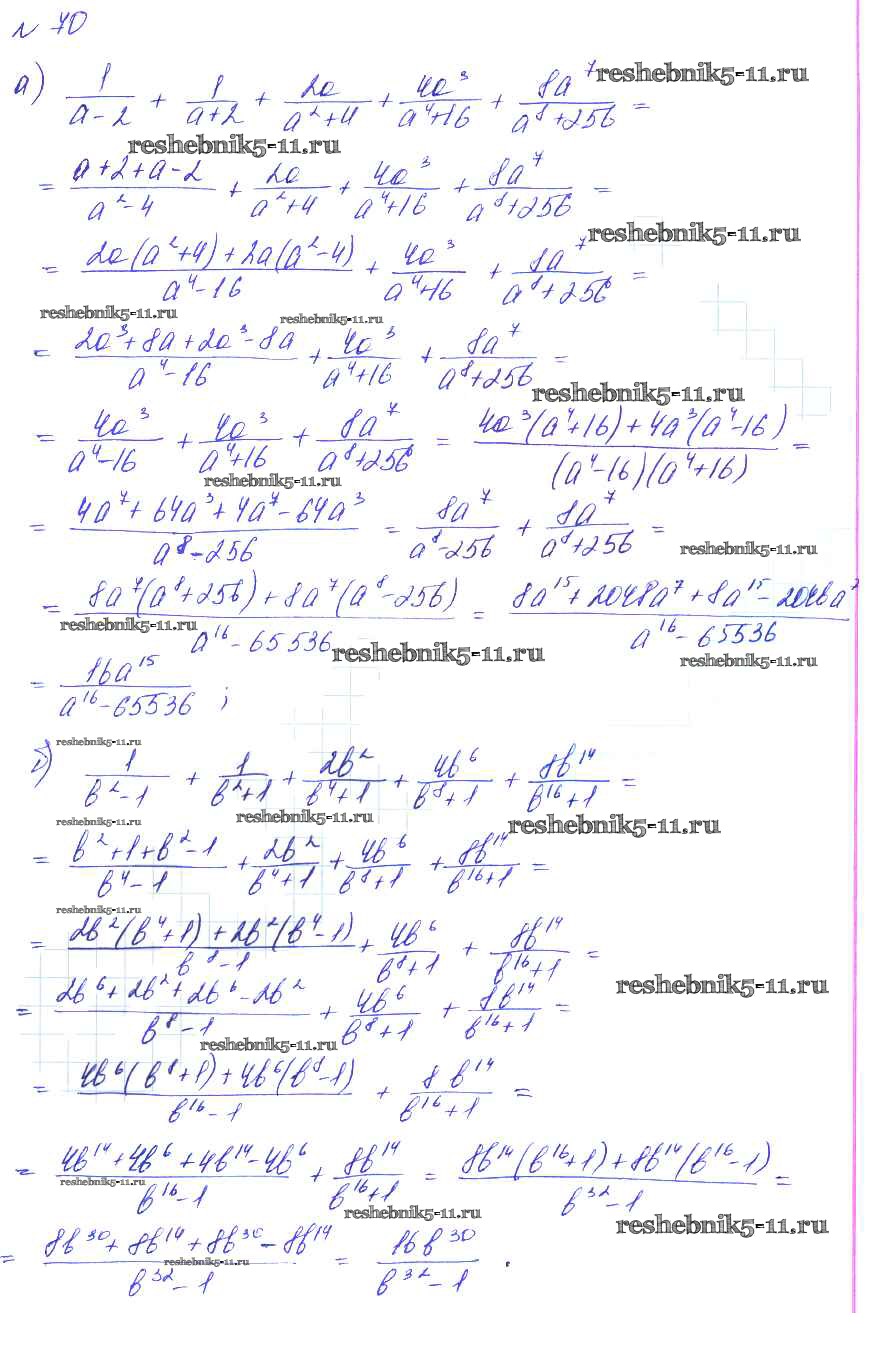 № 70
reshebnik5-11.ru
а) 1/(a-2) + 1/(a+2) + 2a/(a²+4) + 4a³/(a⁴+16) + 8a⁷/(a⁸+256) =
reshebnik5-11.ru
= (a+2+a-2)/(a²-4) + 2a/(a²+4) + 4a³/(a⁴+16) + 8a⁷/(a⁸+256) =
reshebnik5-11.ru
= (2a(a²+4)+2a(a²-4))/(a⁴-16) + 4a³/(a⁴+16) + 8a⁷/(a⁸+256) =
reshebnik5-11.ru reshebnik5-11.ru
= (2a³+8a+2a³-8a)/(a⁴-16) + 4a³/(a⁴+16) + 8a⁷/(a⁸+256) =
reshebnik5-11.ru
= 4a³/(a⁴-16) + 4a³/(a⁴+16) + 8a⁷/(a⁸+256) = (4a³(a⁴+16)+4a³(a⁴-16))/((a⁴-16)(a⁴+16)) =
reshebnik5-11.ru
= (4a⁷+64a³+4a⁷-64a³)/(a⁸-256) = 8a⁷/(a⁸-256) + 8a⁷/(a⁸+256) =
reshebnik5-11.ru
= (8a⁷(a⁸+256)+8a⁷(a⁸-256))/(a¹⁶-65536) = (8a¹⁵+2048a⁷+8a¹⁵-2048a⁷)/(a¹⁶-65536)
reshebnik5-11.ru reshebnik5-11.ru reshebnik5-11.ru
= 16a¹⁵/(a¹⁶-65536) ;
reshebnik5-11.ru
б) 1/(b²-1) + 1/(b²+1) + 2b²/(b⁴+1) + 4b⁶/(b⁸+1) + 8b¹⁴/(b¹⁶+1) =
reshebnik5-11.ru reshebnik5-11.ru reshebnik5-11.ru
= (b²+1+b²-1)/(b⁴-1) + 2b²/(b⁴+1) + 4b⁶/(b⁸+1) + 8b¹⁴/(b¹⁶+1) =
reshebnik5-11.ru
= (2b²(b⁴+1)+2b²(b⁴-1))/(b⁸-1) + 4b⁶/(b⁸+1) + 8b¹⁴/(b¹⁶+1) =
reshebnik5-11.ru
= (2b⁶+2b²+2b⁶-2b²)/(b⁸-1) + 4b⁶/(b⁸+1) + 8b¹⁴/(b¹⁶+1) =
reshebnik5-11.ru
= (4b⁶(b⁸+1)+4b⁶(b⁸-1))/(b¹⁶-1) + 8b¹⁴/(b¹⁶+1) =
= (4b¹⁴+4b⁶+4b¹⁴-4b⁶)/(b¹⁶-1) + 8b¹⁴/(b¹⁶+1) = (8b¹⁴(b¹⁶+1)+8b¹⁴(b¹⁶-1))/(b³²-1) =
reshebnik5-11.ru reshebnik5-11.ru reshebnik5-11.ru
= (8b³⁰+8b¹⁴+8b³⁰-8b¹⁴)/(b³²-1) = 16b³⁰/(b³²-1) .
reshebnik5-11.ru